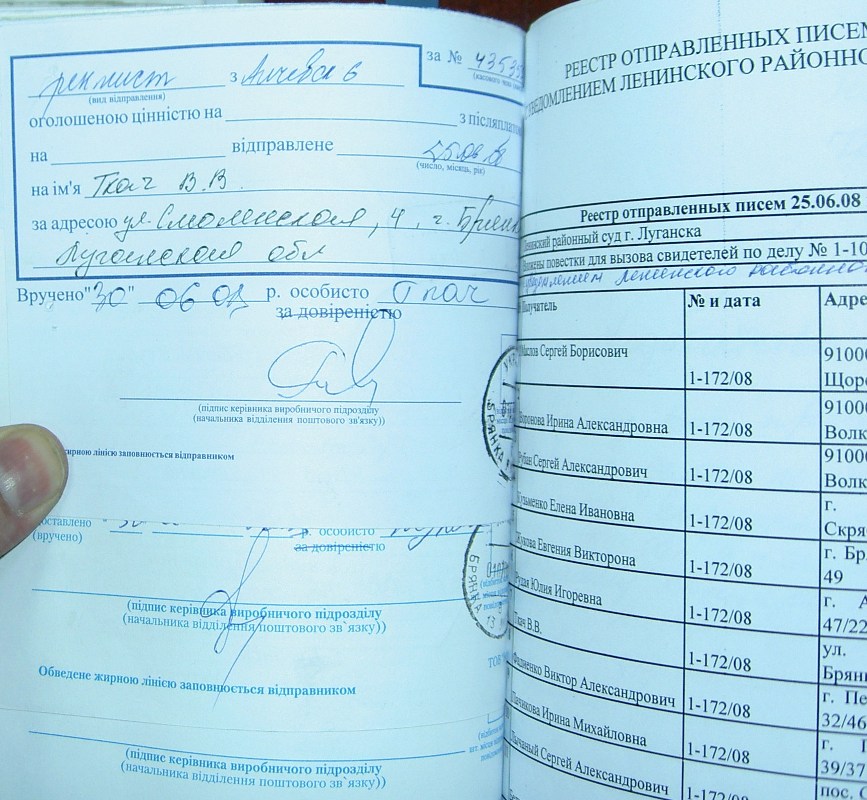 за №
рек лист з
(вид відправлення)
оголошеною цінністю на з післяплато
на відправлене
(число, місяць, рік)
на ім'я Ткач В.В.
за адресою ул. Смоленская, 4, г. Брянк
Луганская обл
Вручено "30" 06 08 р. особисто Ткач
за довіреністю
(підпис керівника виробничого підрозділу
(начальника відділення поштового зв'язку))
жирною лінією заповнюється відправником
БРЯНКА
(вручено) р. особисто
за довіреністю
(підпис керівника виробничого підрозділу
(начальника відділення поштового зв`язку))
БРЯНКА 13
Обведене жирною лінією заповнюється відправником
(підпис керівника виробничого підрозділу
(начальника відділення поштового зв`язку))
РЕЕСТР ОТПРАВЛЕННЫХ ПИСЕМ
ВЕДОМЛЕНИЕМ ЛЕНИНСКОГО РАЙОННО
Реестр отправленных писем 25.06.08
Ленинский районный суд г. Луганска
повестки для вызова свидетелей по делу № 1-10
Получатель № и дата Адре
Маслов Сергей Борисович 1-172/08 91000 Щорс
Воронова Ирина Александровна 1-172/08 91000 Волк
Рубан Сергей Александрович 1-172/08 91000 Волк
Кузьменко Елена Ивановна 1-172/08 г. Скря
Жукова Евгения Викторона 1-172/08 г. Бр 49
Юлия Игоревна 1-172/08 г. А 47/22
Ткач В.В. 1-172/08 ул. Брянк
Фадиенко Виктор Александрович 1-172/08 г. Пе 32/46
Ирина Михайловна 1-172/08 г. 39/37
Сергей Александрович 1-172/08 пос.